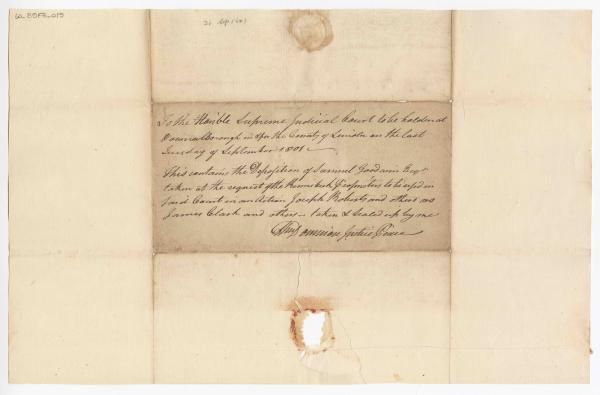 To the Honble Supreme Judicial Court to be holden at
in & for the County of Lincoln on the last
Tuesday of September 1801
This contains the Deposition of Samuel Goodwin Esqr
taken at the request of the Kennebeck Proprietors to be used in
said Court in an Action Joseph Roberts and others vs
James Clark and others – taken & sealed up by me
Justice Peace